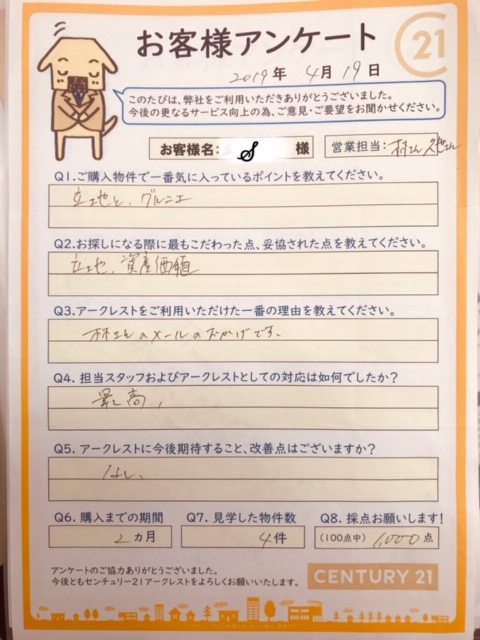 お客様アンケート
21
2019年 4月 19日
このたびは、弊社をご利用いただきありがとうございました。
今後の更なるサービス向上の為、ご意見・ご要望をお聞かせください。
お客様名: S 様
営業担当: 林さん
Q1.ご購入物件で一番気に入っているポイントを教えてください。
立地と、グルニエ
Q2.お探しになる際に最もこだわった点、妥協された点を教えてください。
立地、資産価値
Q3.アークレストをご利用いただけた一番の理由を教えてください。
林さんのメールのおかげです、
Q4.担当スタッフおよびアークレストとしての対応は如何でしたか?
最高,
Q5.アークレストに今後期待すること、改善点はございますか?
なし、
Q6.購入までの期間
2カ月
Q7.見学した物件数
4件
Q8.採点お願いします!
(100点中) 1000点
アンケートのご協力ありがとうございました。
今後ともセンチュリー21アークレストをよろしくお願いいたします。
CENTURY 21